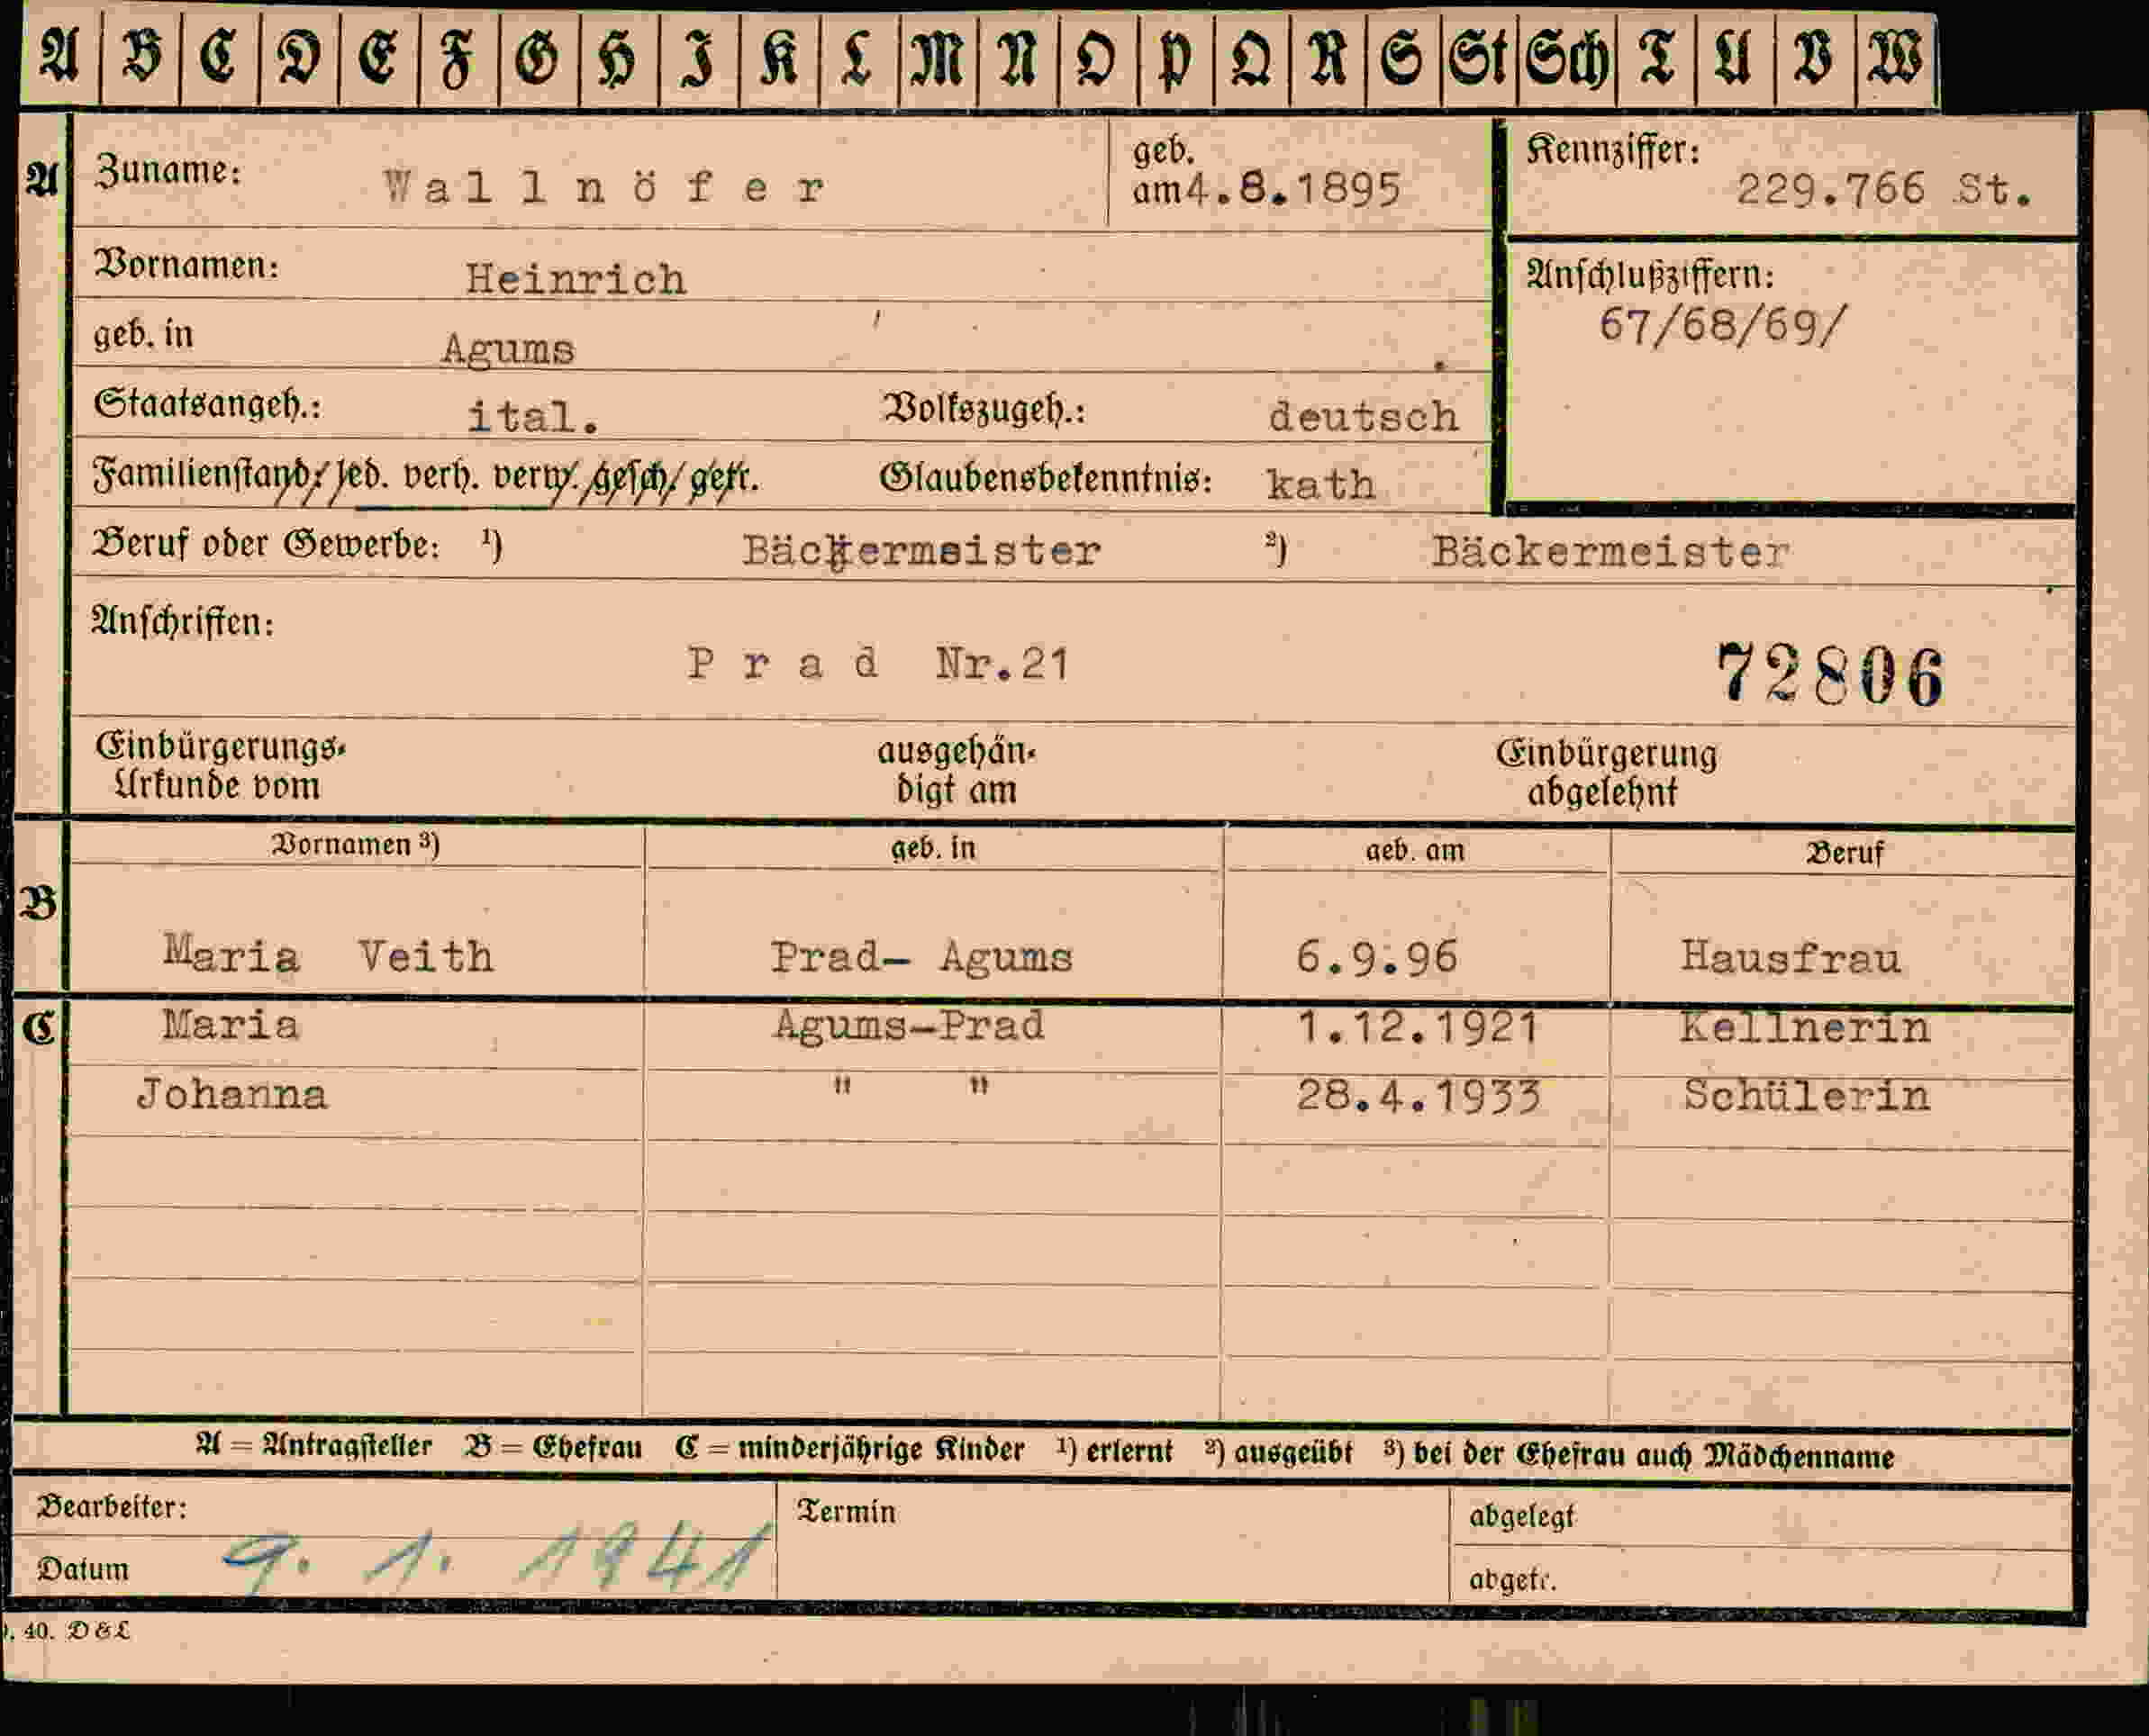 A B C D E F G H I K L M N O P Q R S St Sch T U V W
A Zuname: Wallnöfer geb. am 4.8.1895 Kennziffer: 229.766 St.
Vornamen: Heinrich Anschlußziffern: 67/68/69/
geb. in Agums
Staatsangeh.: ital. Volkszugeh.: deutsch
Familienstand: led. verh. verw. gesch. getr. Glaubensbekenntnis: kath
Beruf oder Gewerbe: ¹) Bäckermeister ²) Bäckermeister
Anschriften:
Prad Nr.21 72806
Einbürgerungs- ausgehän- Einbürgerung
Urkunde vom digt am abgelehnt
Vornamen ³) geb. in geb. am Beruf
B
Maria Veith Prad- Agums 6.9.96 Hausfrau
C Maria Agums-Prad 1.12.1921 Kellnerin
Johanna " " 28.4.1933 Schülerin
A = Antragsteller B = Ehefrau C = minderjährige Kinder ¹) erlernt ²) ausgeübt ³) bei der Ehefrau auch Mädchenname
Bearbeiter: Termin abgelegt
Datum 9. 1. 1941 abgetr.
40. D & L